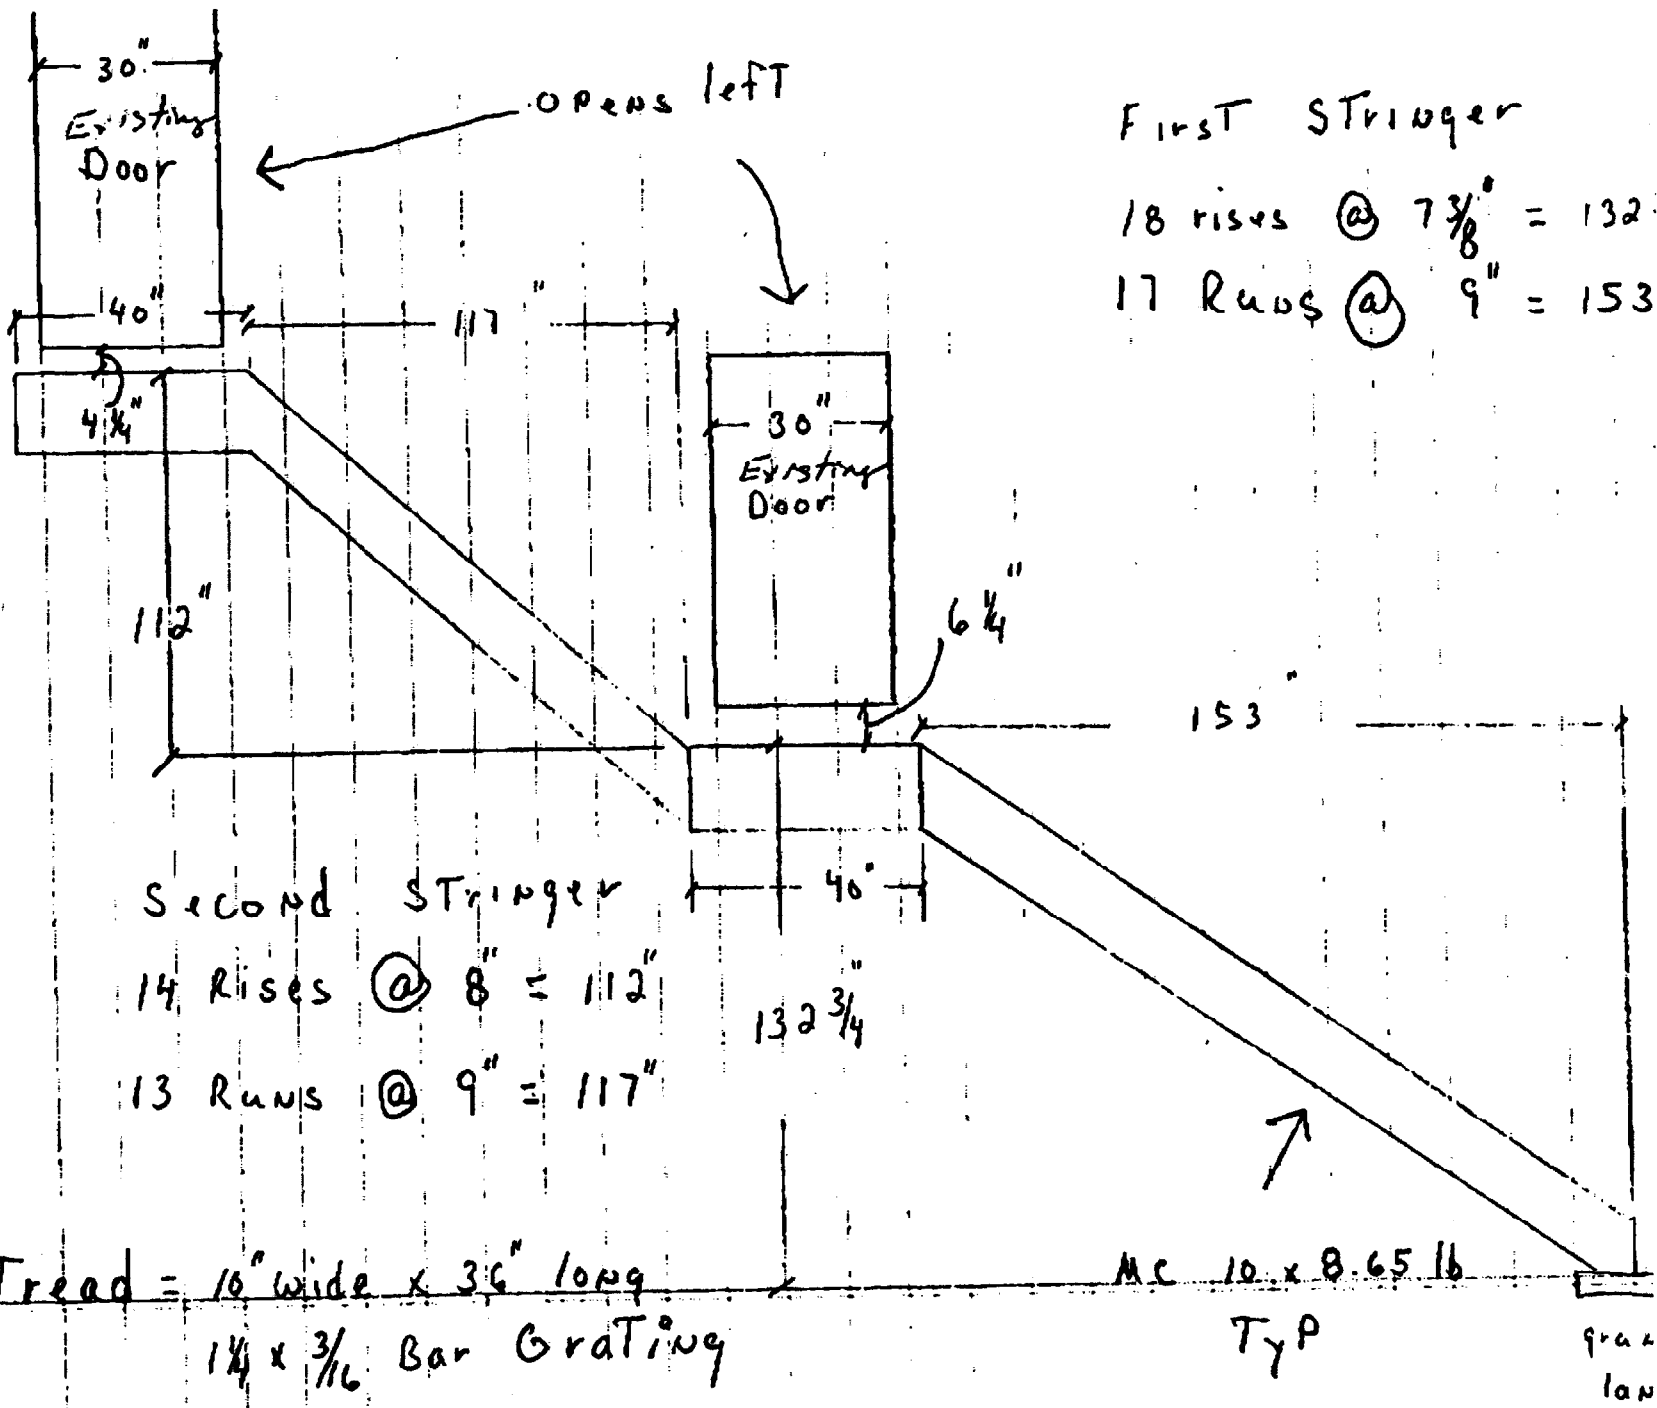 30"
Existing
Door
opens left
First Stringer
18 rises @ 7 3/8" = 132
17 Runs @ 9" = 153
40"
117"
4 1/4"
30"
Existing
Door
112"
6 1/4"
153"
Second Stringer
14 Rises @ 8" = 112"
13 Runs @ 9" = 117"
40"
132 3/4"
Tread = 10" wide x 36" long
1 1/4 x 3/16 Bar Grating
MC 10 x 8.65 lb
Typ